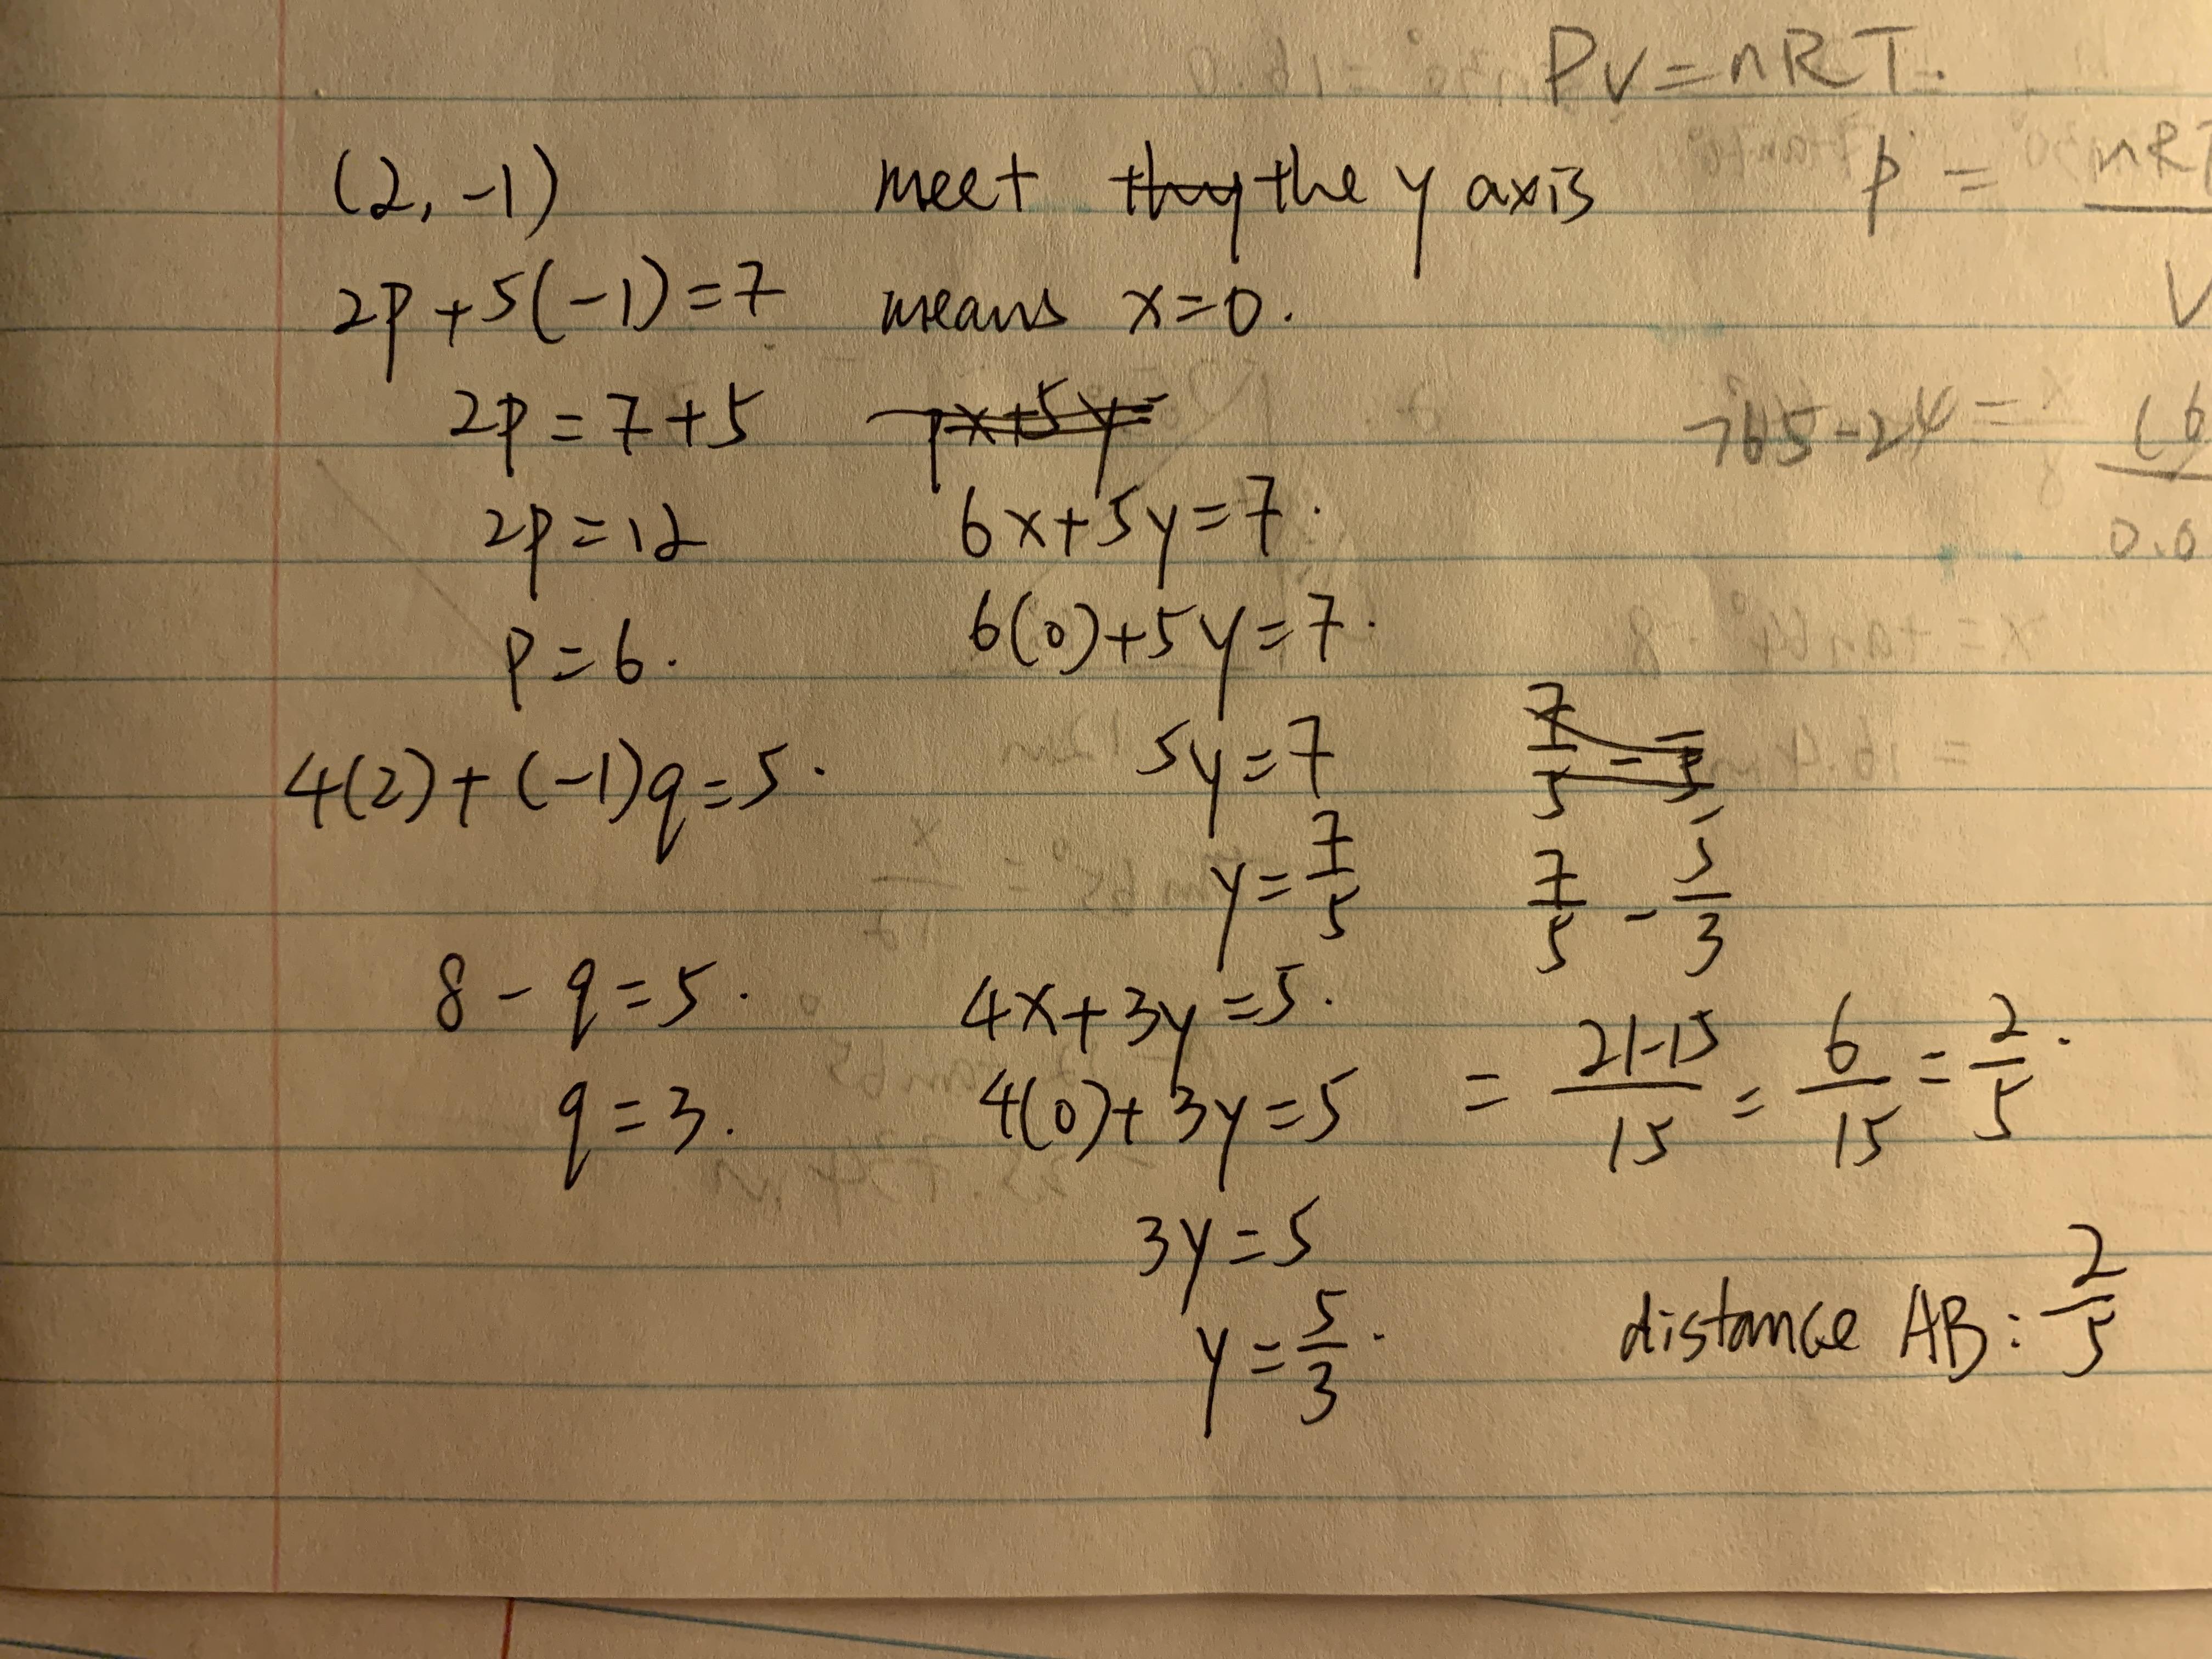 PV=nRT.
p = nRT
V
(2, -1)
2p+5(-1)=7
2p=7+5
2p=12
p=6.
4(2)+(-1)q=5.
8-q=5.
q=3.
meet the y axis
means x=0.
px+5y=
6x+5y=7.
6(0)+5y=7.
5y=7
y=7/5
4x+3y=5.
4(0)+3y=5
3y=5
y=5/3.
7/5 - 5/3
= 21-15/15 = 6/15 = 2/5.
distance AB: 2/5
0.0